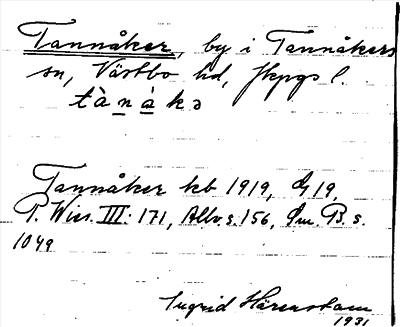 Tannåker, by i Tannåkers
sn, Västbo hd, Jkpgs l.
tànàkə
Tannåker kb 1919, G 19,
P. Wies. III: 171, Allv. s. 156, Sm. B. s.
1049
Ingrid Härenstam
1931